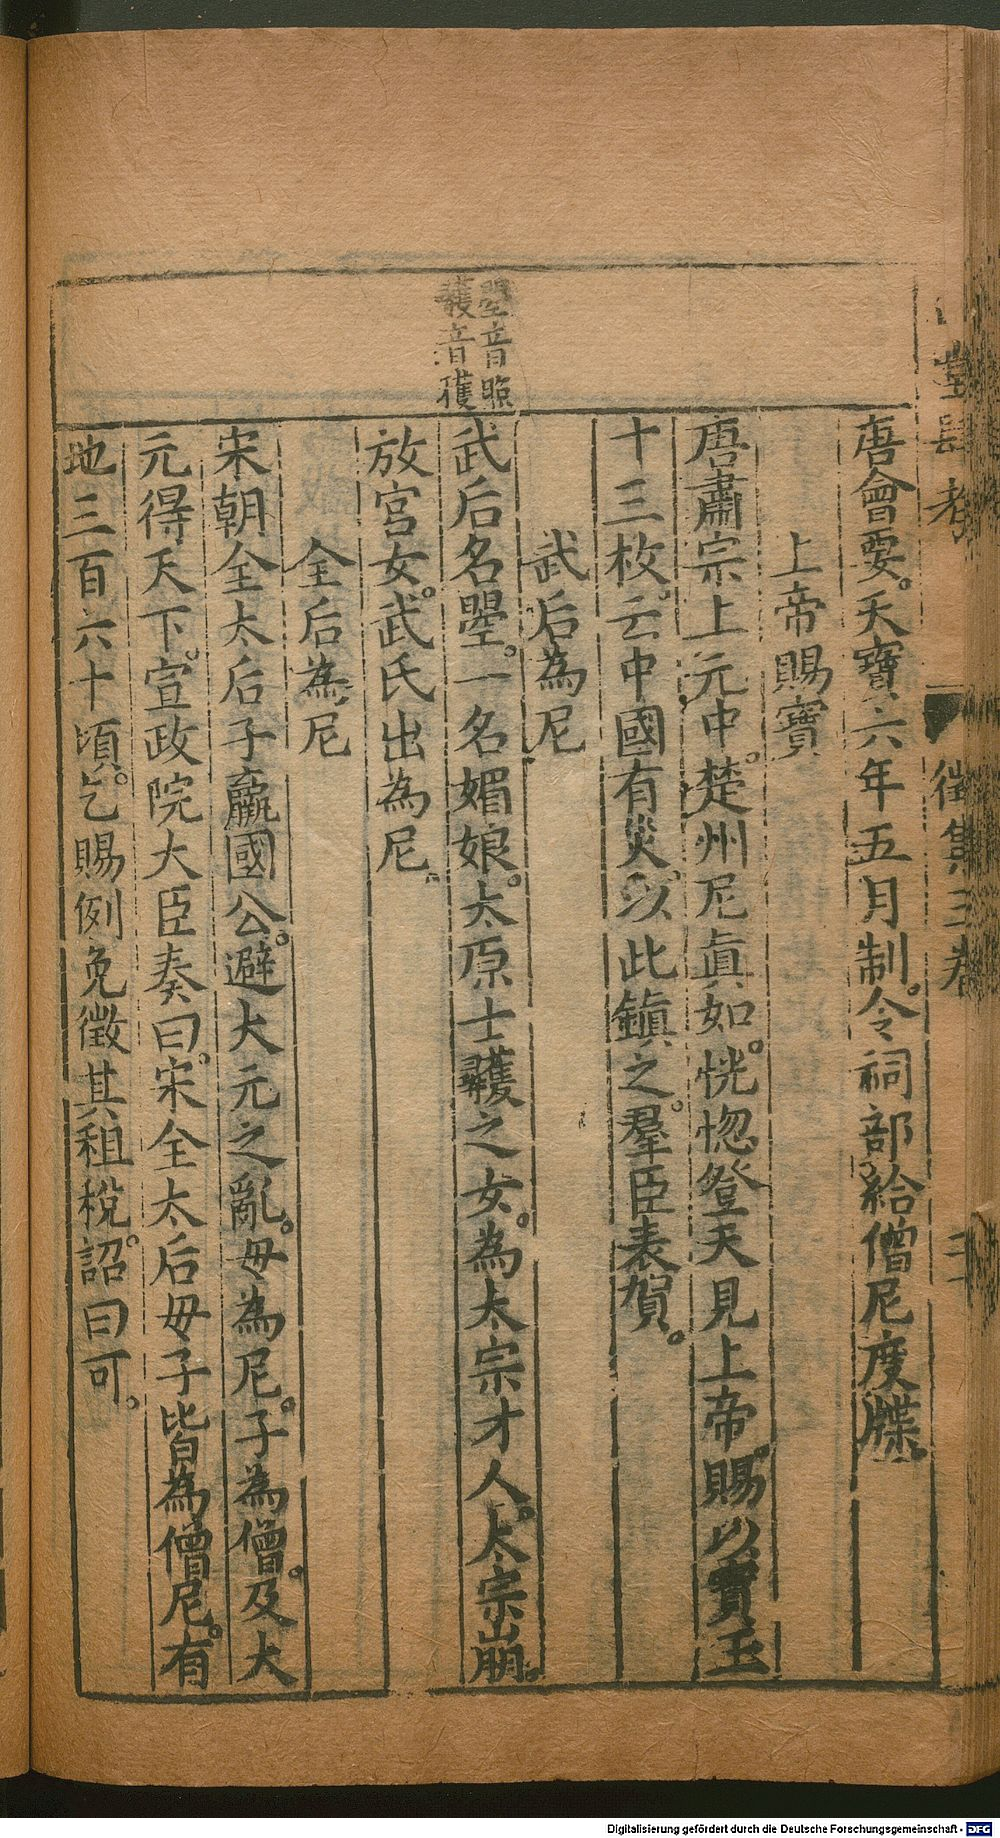 唐會要。天寶六年五月制。令祠部給僧尼度牒。
上帝賜寶
唐肅宗上元中。楚州尼真如。恍惚登天見上帝。賜以寶玉
十三枚。云中國有災。以此鎮之。羣臣表賀。
武后為尼
曌音照
彠音矱
武后名曌。一名媚娘。太原士彠之女。為太宗才人。太宗崩。
放宮女。武氏出為尼。
全后為尼
宋朝全太后子瀛國公。避大元之亂。母為尼。子為僧。及大
元得天下。宣政院大臣奏曰。宋全太后母子皆為僧尼。有
地三百六十頃。乞賜例免徵其租稅。詔曰可。
徵集三卷
Digitalisierung gefördert durch die Deutsche Forschungsgemeinschaft - DFG